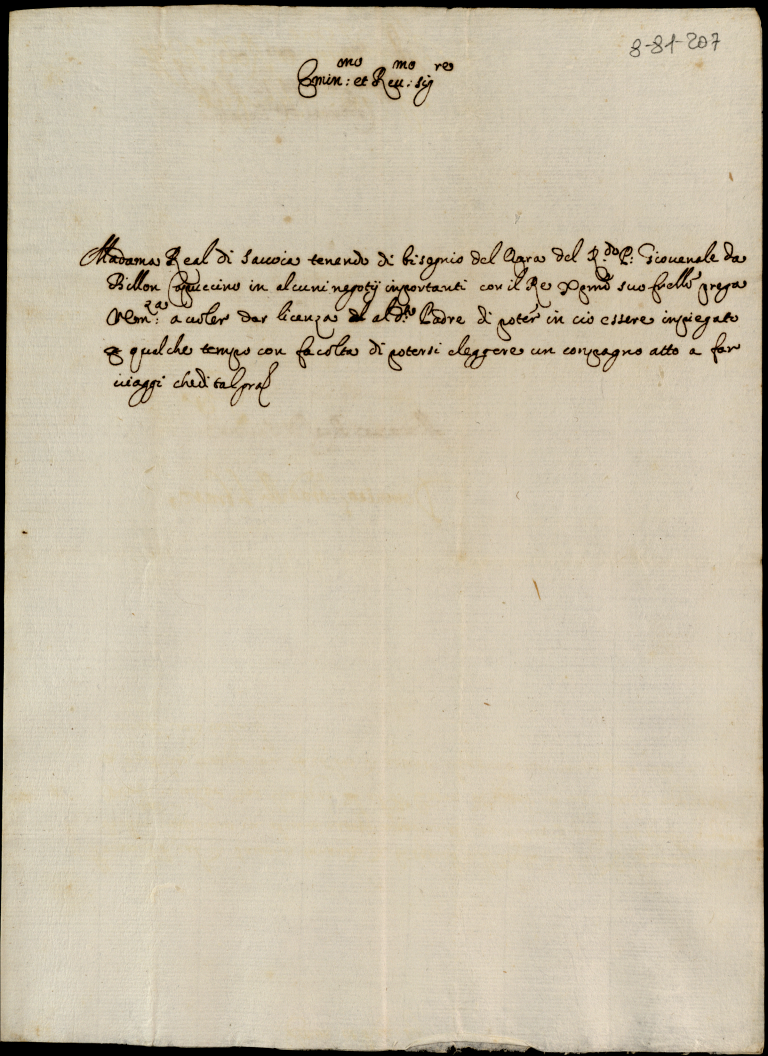 8-81-207
Emin:mo et Reu:mo sigre
Madama Real di Sauoia tenendo di bisognio del Opra del R.do P: Giouenale da
Billon Capuccino in alcuni negotij inportanti con il Re Xpmo suo frello prega
V Em:za a uoler dar licenza al d.to Padre di poter in cio essere inpiegato
p qualche tempo con facolta di potersi eleggere un conpagno atto a far
uiaggi che di tal gra